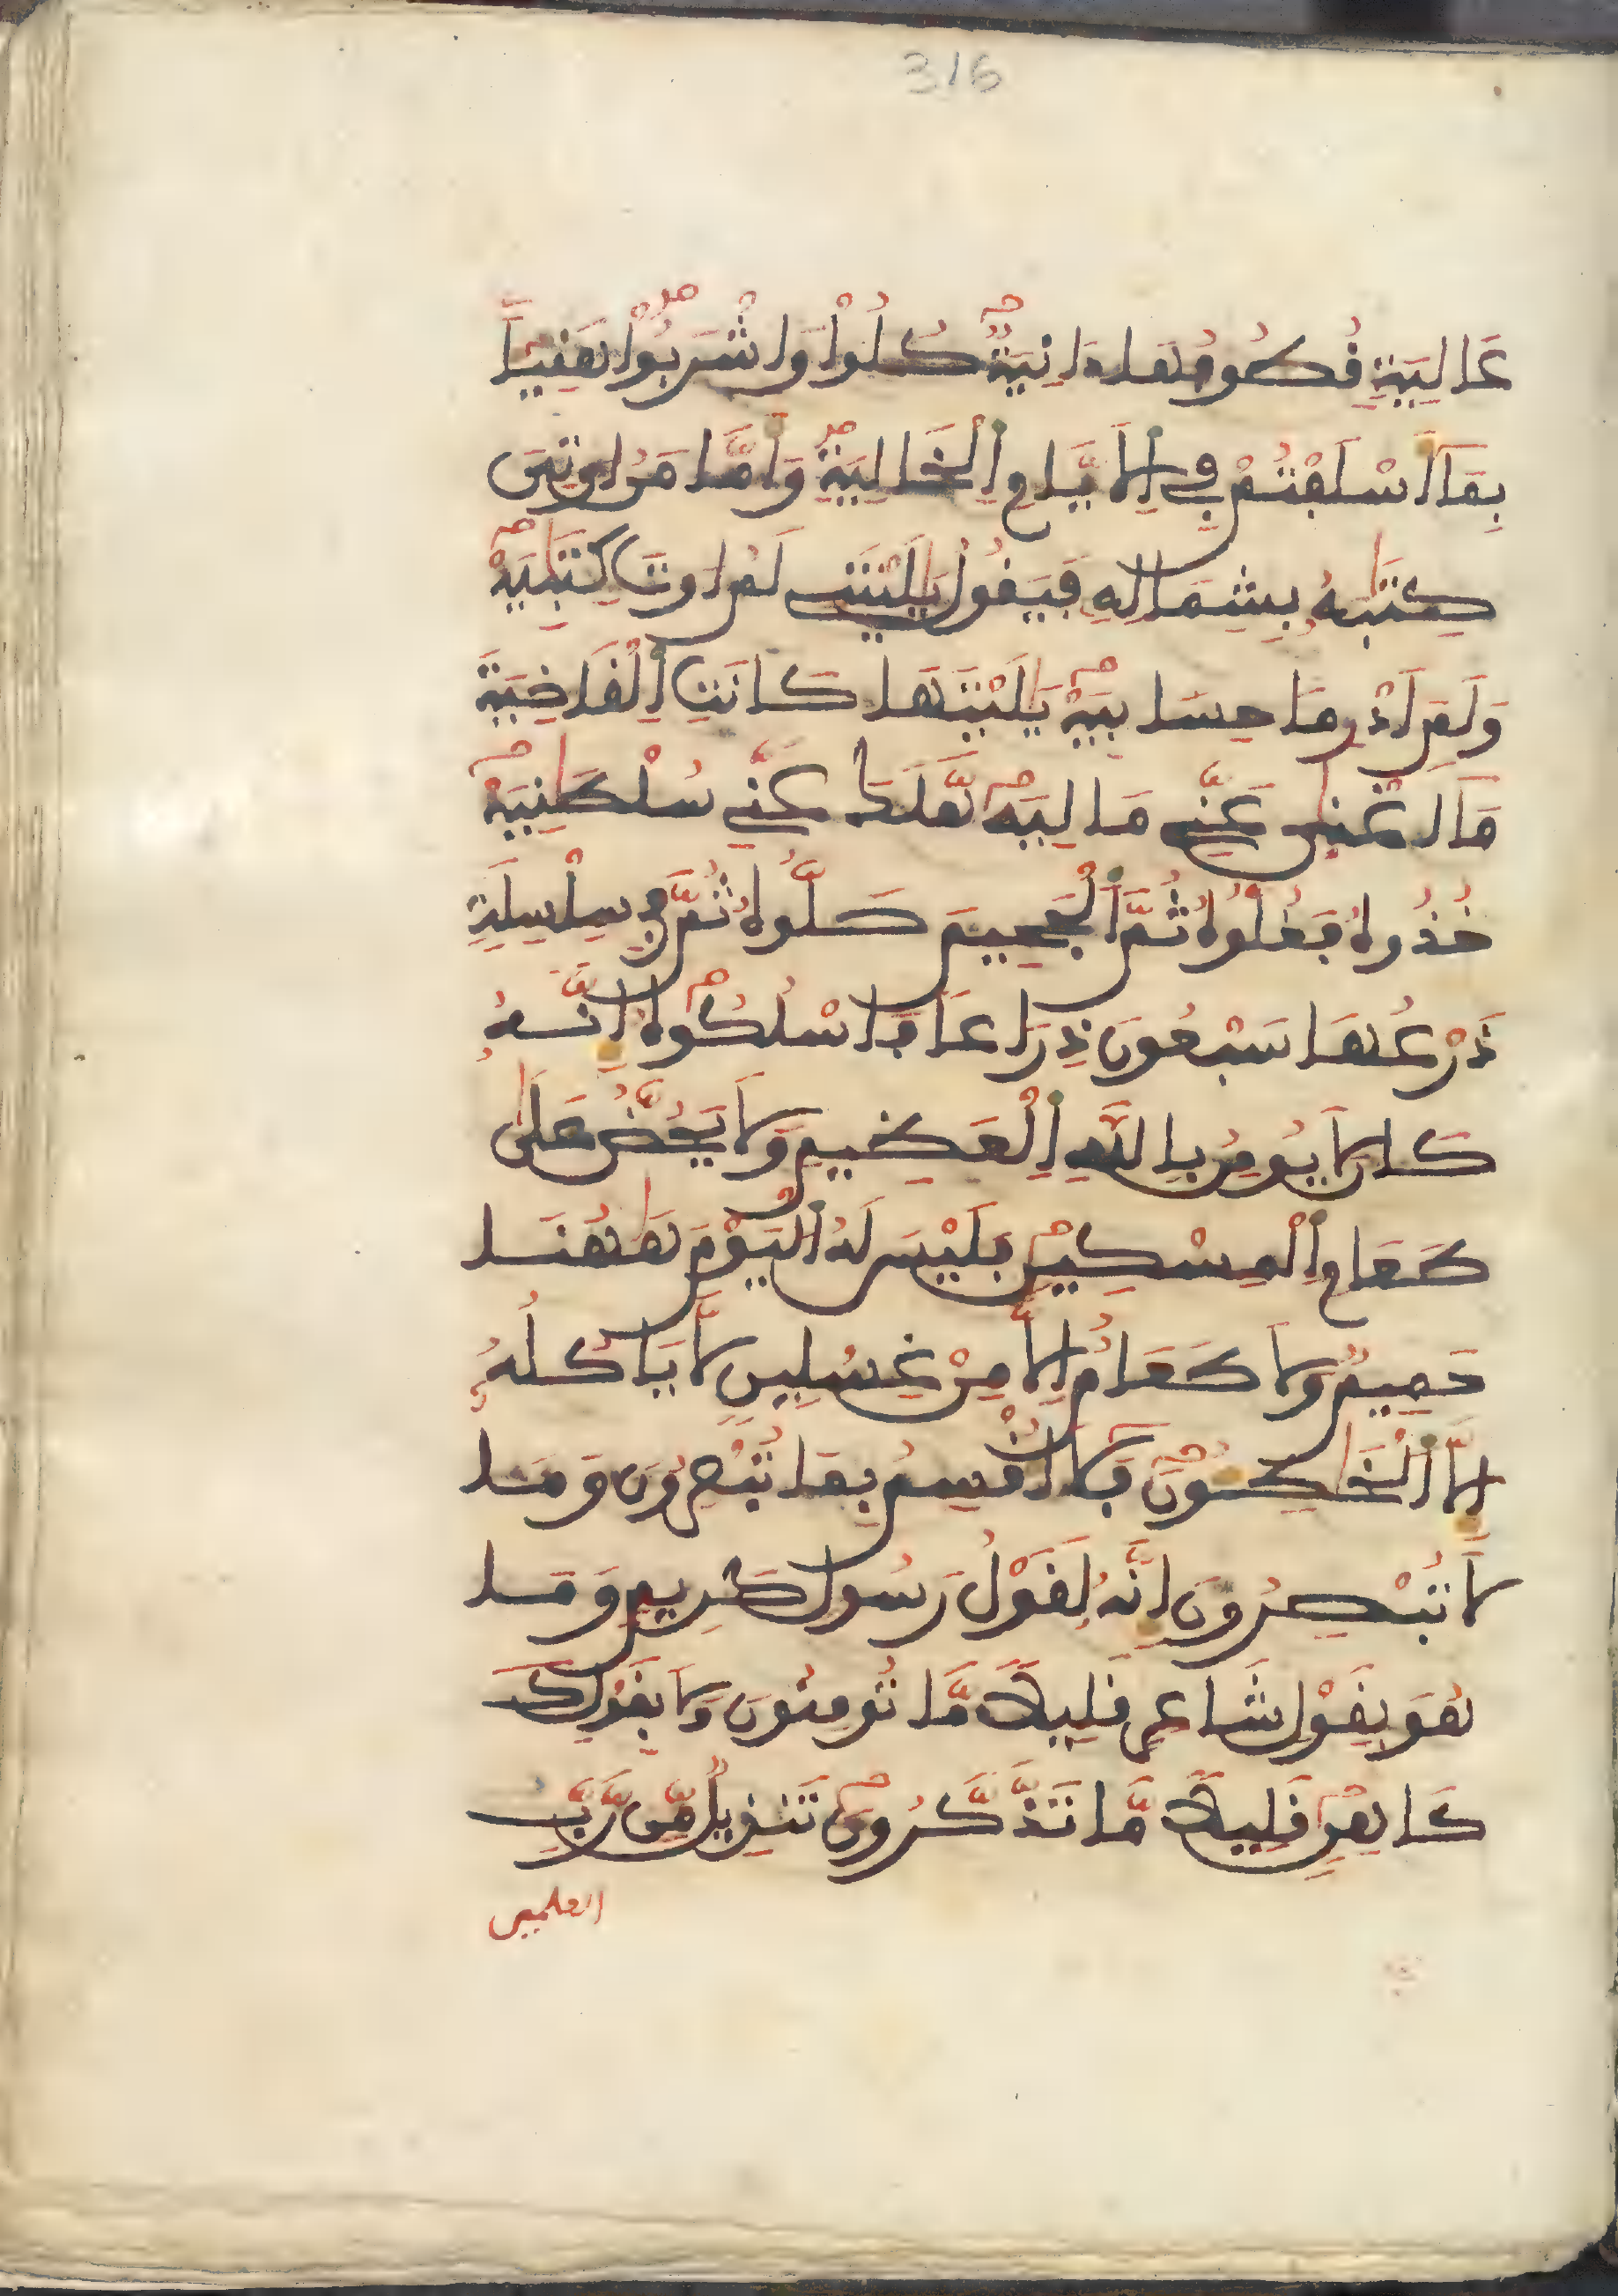 316
عَالِيَةٍ قُطُوفُهَا دَانِيَةٌ كُلُواْ وَاشْرَبُواْ هَنِيـًٔا
بِمَا أَسْلَفْتُمْ فِي اِلْأَيَّامِ اِلْخَالِيَةِ وَأَمَّا مَنُ اوتِيَ
كِتَٰبَهُ بِشِمَالِهِ فَيَقُولُ يَٰلَيْتَنِے لَمُ اوتَ كِتَٰبِيَهْ
وَلَمَ اَدْرِ مَا حِسَابِيَهْ يَٰلَيْتَهَا كَانَتِ اِلْقَاضِيَةَ
مَا أَغْنَىٰ عَنِّے مَالِيَهْ هَلَكَ عَنِّے سُلْطَٰنِيَهْ
خُذُوهُ فَغُلُّوهُ ثُمَّ اَلْجَحِيمَ صَلُّوهُ ثُمَّ فِي سِلْسِلَةٍ
ذَرْعُهَا سَبْعُونَ ذِرَاعاً فَاسْلُكُوهُ إِنَّهُ
كَانَ لَا يُومِنُ بِاللَّهِ اِلْعَظِيمِ وَلَا يَحُضُّ عَلَىٰ
طَعَامِ اِلْمِسْكِينِ فَلَيْسَ لَهُ اُلْيَوْمَ هَٰهُنَا
حَمِيمٌ وَلَا طَعَامٌ اِلَّا مِنْ غِسْلِينٍ لَّا يَاكُلُهُ
إِلَّا اَلْخَٰطِـُٔونَ فَلَا أُقْسِمُ بِمَا تُبْصِرُونَ وَمَا
لَا تُبْصِرُونَ إِنَّهُ لَقَوْلُ رَسُولٍ كَرِيمٍ وَمَا
هُوَ بِقَوْلِ شَاعِرٍ قَلِيلًا مَّا تُومِنُونَ وَلَا بِقَوْلِ كَـ
ـاهِنٍ قَلِيلًا مَّا تَذَّكَّرُونَ تَنزِيلٌ مِّن رَّبِّ
العلمين